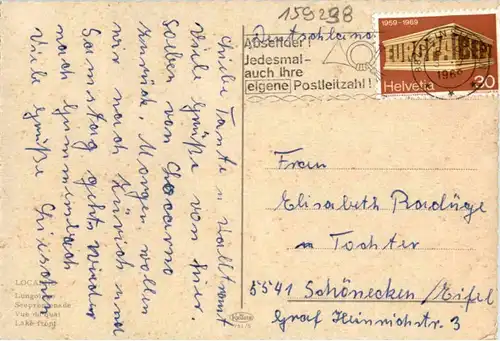 159298
Deutschland
Absender!
Jedesmal
auch Ihre
eigene Postleitzahl!
1959-1969
EUROPA CEPT
Helvetia 30
1969
Liebe Tante u. Waltraut
Viele Grüße von hier.
Soeben von Locarno
zurück. Morgen wollen
wir nach Zürich und
Samstag gehts wieder
nach Gummersbach
Viele Grüße
Frau
Elisabeth Radüge
m Tochter
5541 Schönecken/Eifel
Graf Heinrichstr. 3
LOCA
Lungo
Seepromenade
Vue du quai
Lake-front